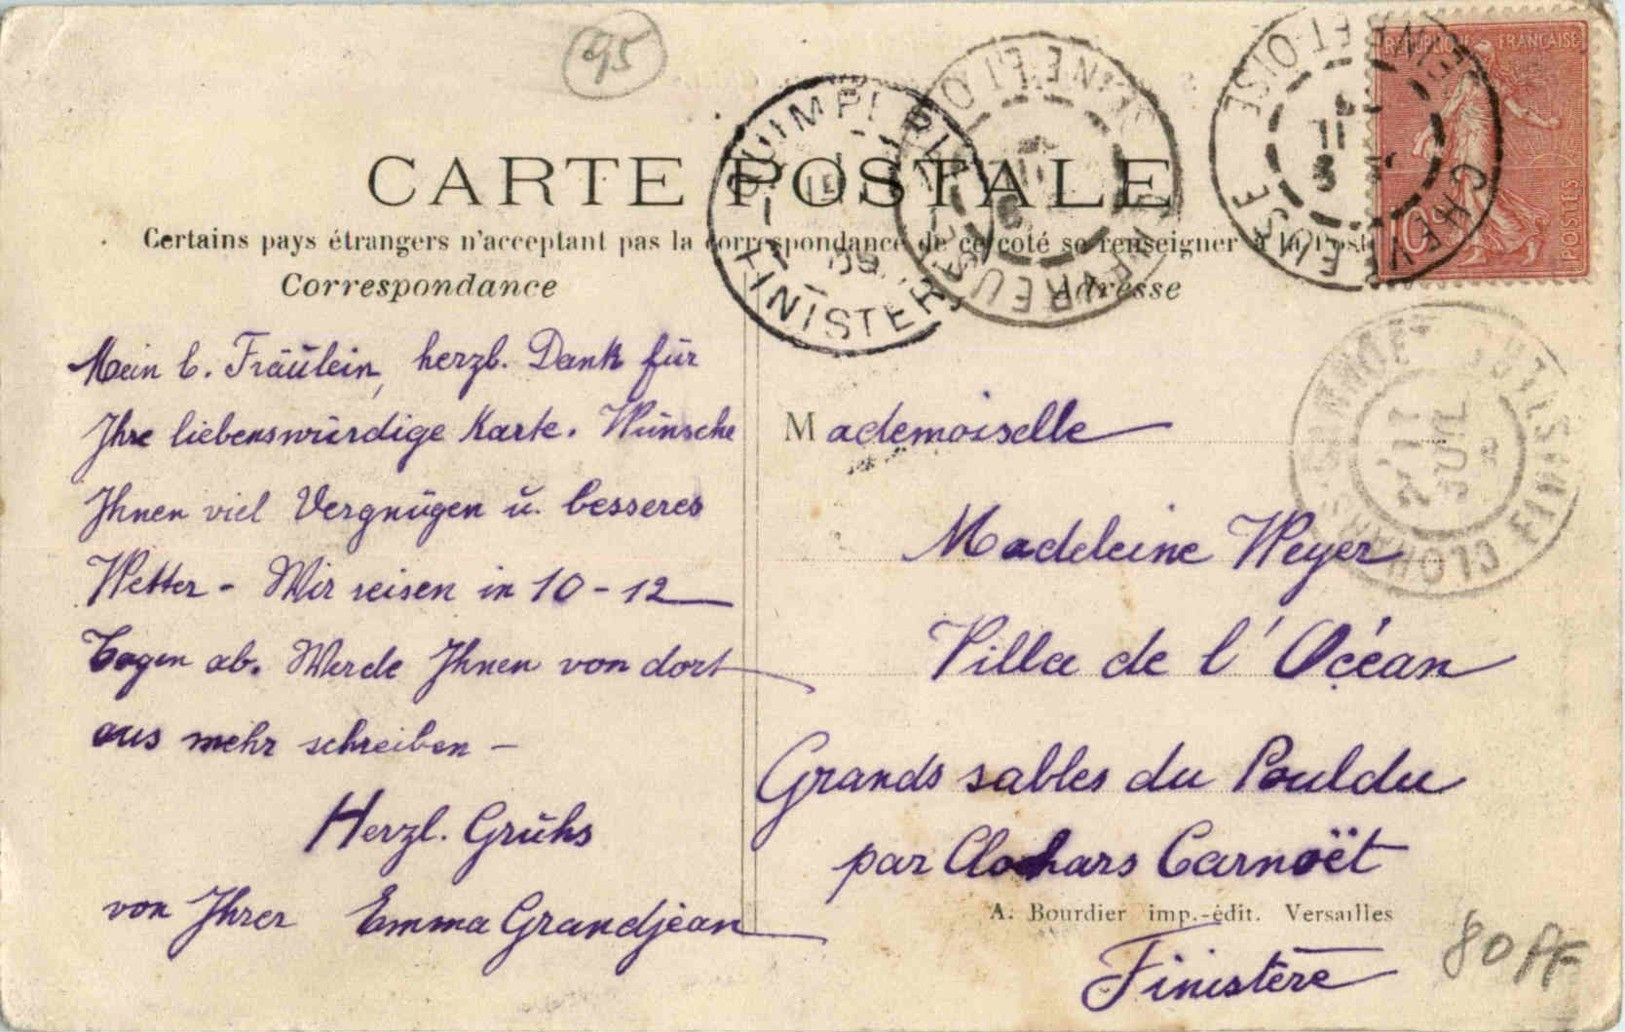 95
CARTE POSTALE
Certains pays étrangers n'acceptant pas la correspondance de ce coté se renseigner à la Poste
Correspondance
Mein l. Fräulein, herzl. Dank für
Ihre liebenswürdige Karte. Wünsche
Ihnen viel Vergnügen u. besseres
Wetter - Wir reisen in 10-12
Tagen ab. Werde Ihnen von dort
aus mehr schreiben -
Herzl. Gruhs
von Ihrer Emma Grandjean
Adresse
Mademoiselle
Madeleine Weyer
Villa de l'Océan
Grands sables du Pouldu
par Clohars Carnoët
A. Bourdier imp.-édit. Versailles
Finistère
80 FF
REPUBLIQUE FRANÇAISE
10
POSTES
CHEVREUSE
SEINE ET OISE
CHEVREUSE
SEINE ET OISE
QUIMPERLE
FINISTERE
CLOHARS-CARNOET
FINISTERE
11
JUIL